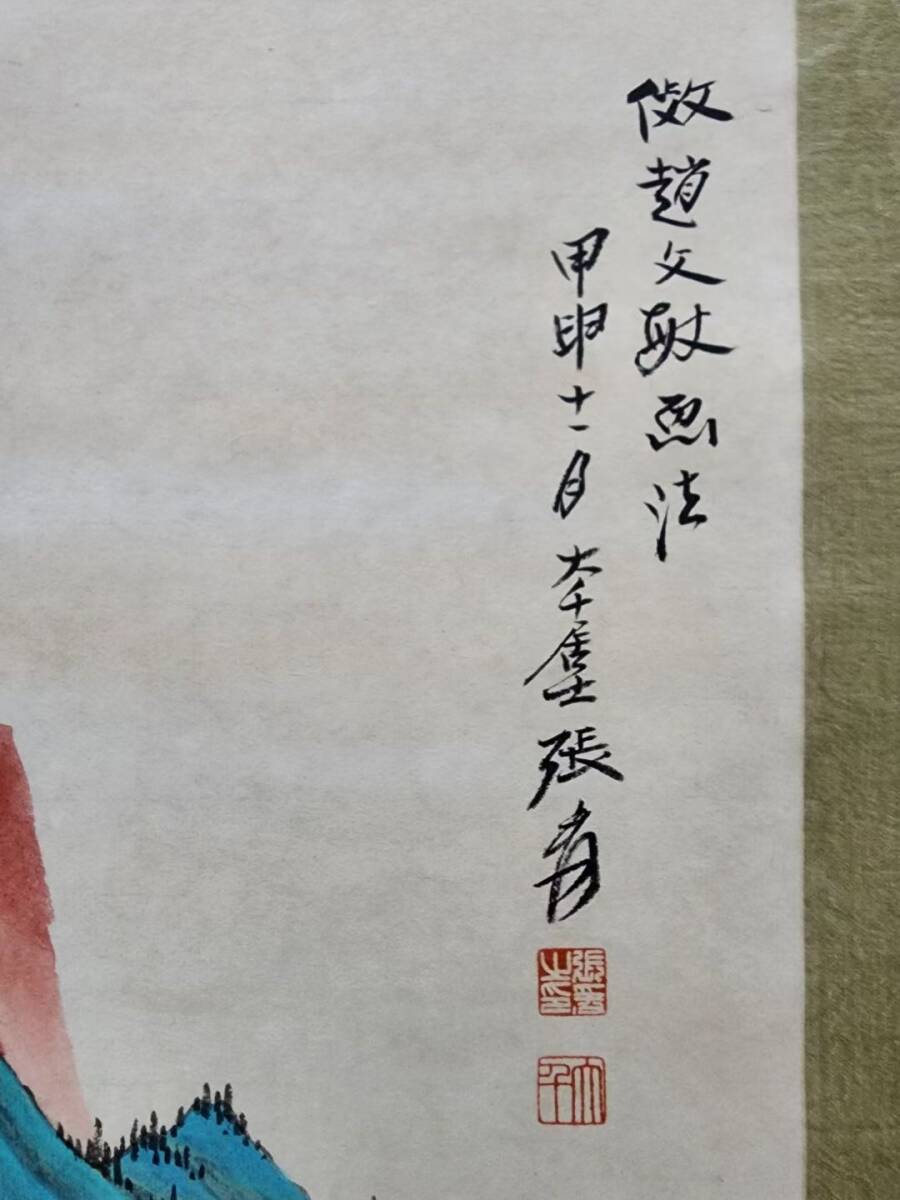 倣趙文敏画法
甲申十一月大千居士張爰
張爰之印
大千